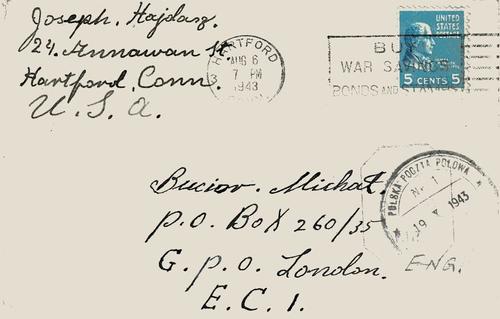 Joseph. Hajdasz.
24. Annawan St.
Hartford, Conn.
U. S. A.
HARTFORD
AUG 6
7 PM
1943
BUY
WAR SAVINGS
BONDS AND STAMPS
UNITED
STATES
POSTAGE
5 CENTS 5
POLSKA POCZTA POLOWA
Nr. 1
19 X 1943
Bucior. Michat.
P.O. Box 260/35
G.P.O. London.
ENG.
E.C.1.